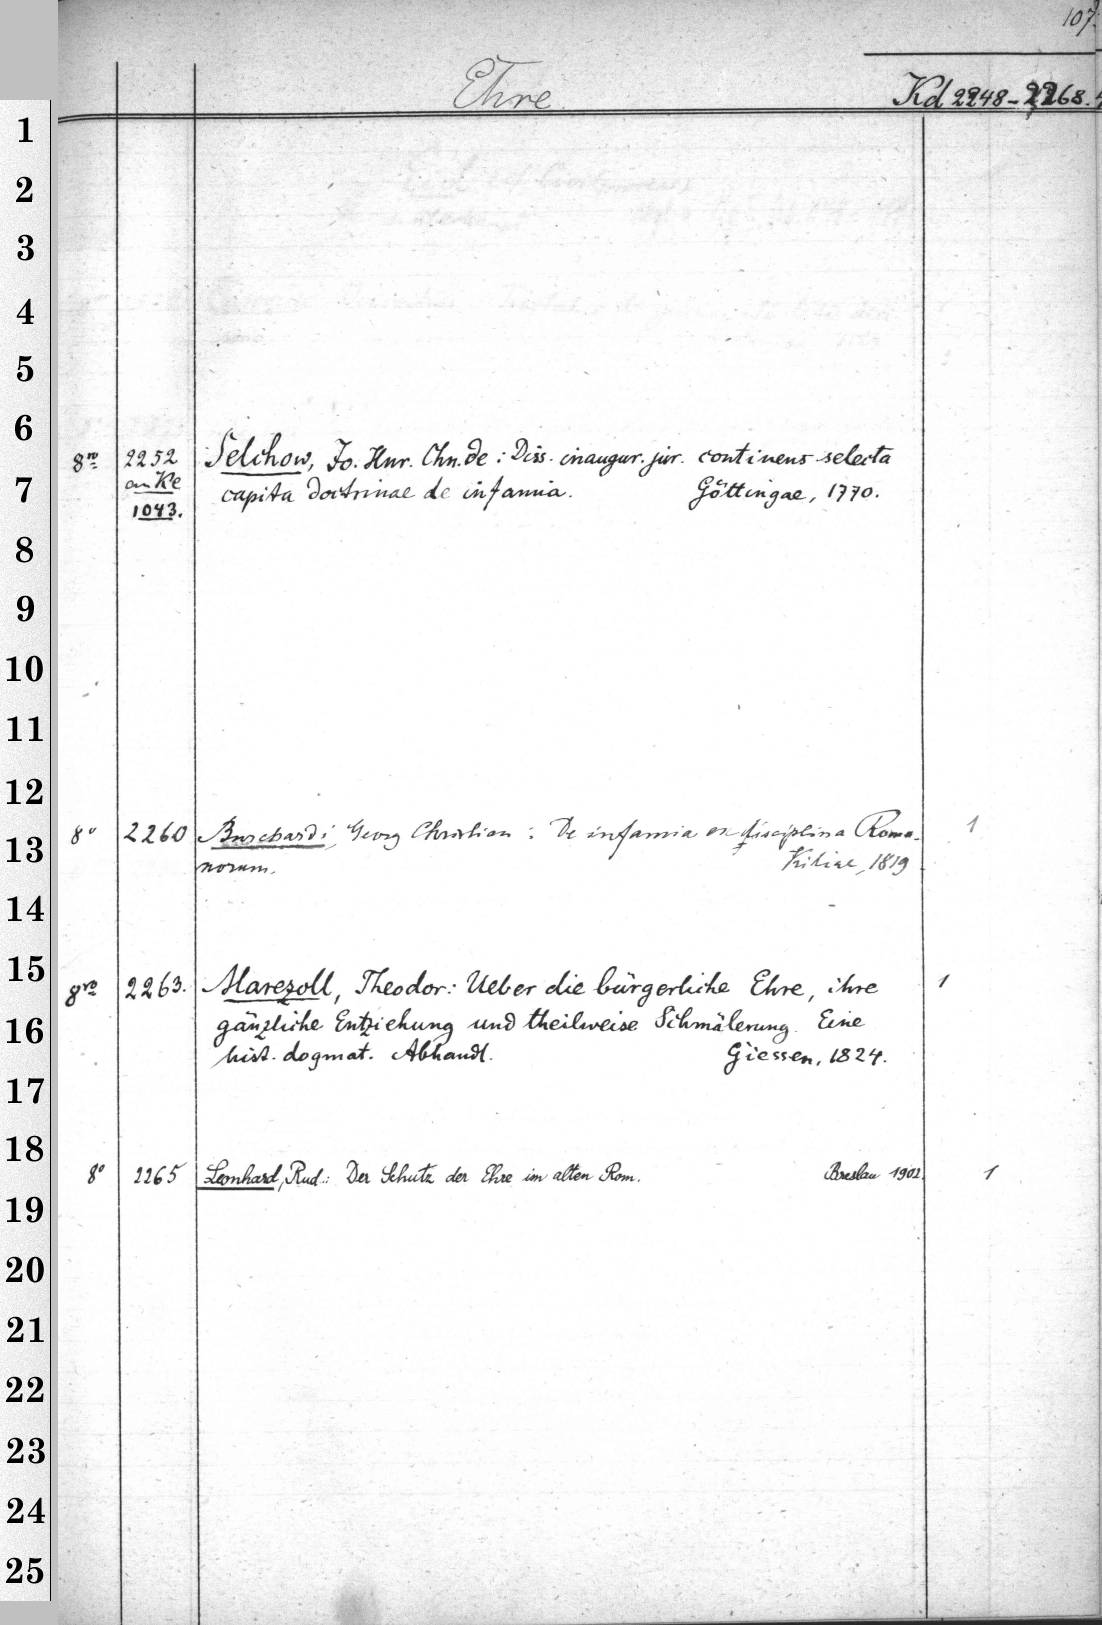 107.
Ehre
Kd 2248-2268.
1
2
3
4
5
6
8ro 2252 Selchow, Jo. Hnr. Chn. de: Diss. inaugur. jur. continens selecta
an Ke
7
capita doctrinae de infamia. Göttingae, 1770.
1043.
8
9
10
11
12
8o 2260 Burchardi, Georg Christian: De infamia ex disciplina Roma- 1
13
norum. Kiliae, 1819
14
15
8ro 2263. Marezoll, Theodor: Ueber die bürgerliche Ehre, ihre 1
16
gänzliche Entziehung und theilweise Schmälerung. Eine
hist. dogmat. Abhandl. Giessen, 1824.
17
18
8o 2265 Leonhard, Rud.: Der Schutz der Ehre im alten Rom. Breslau 1902. 1
19
20
21
22
23
24
25